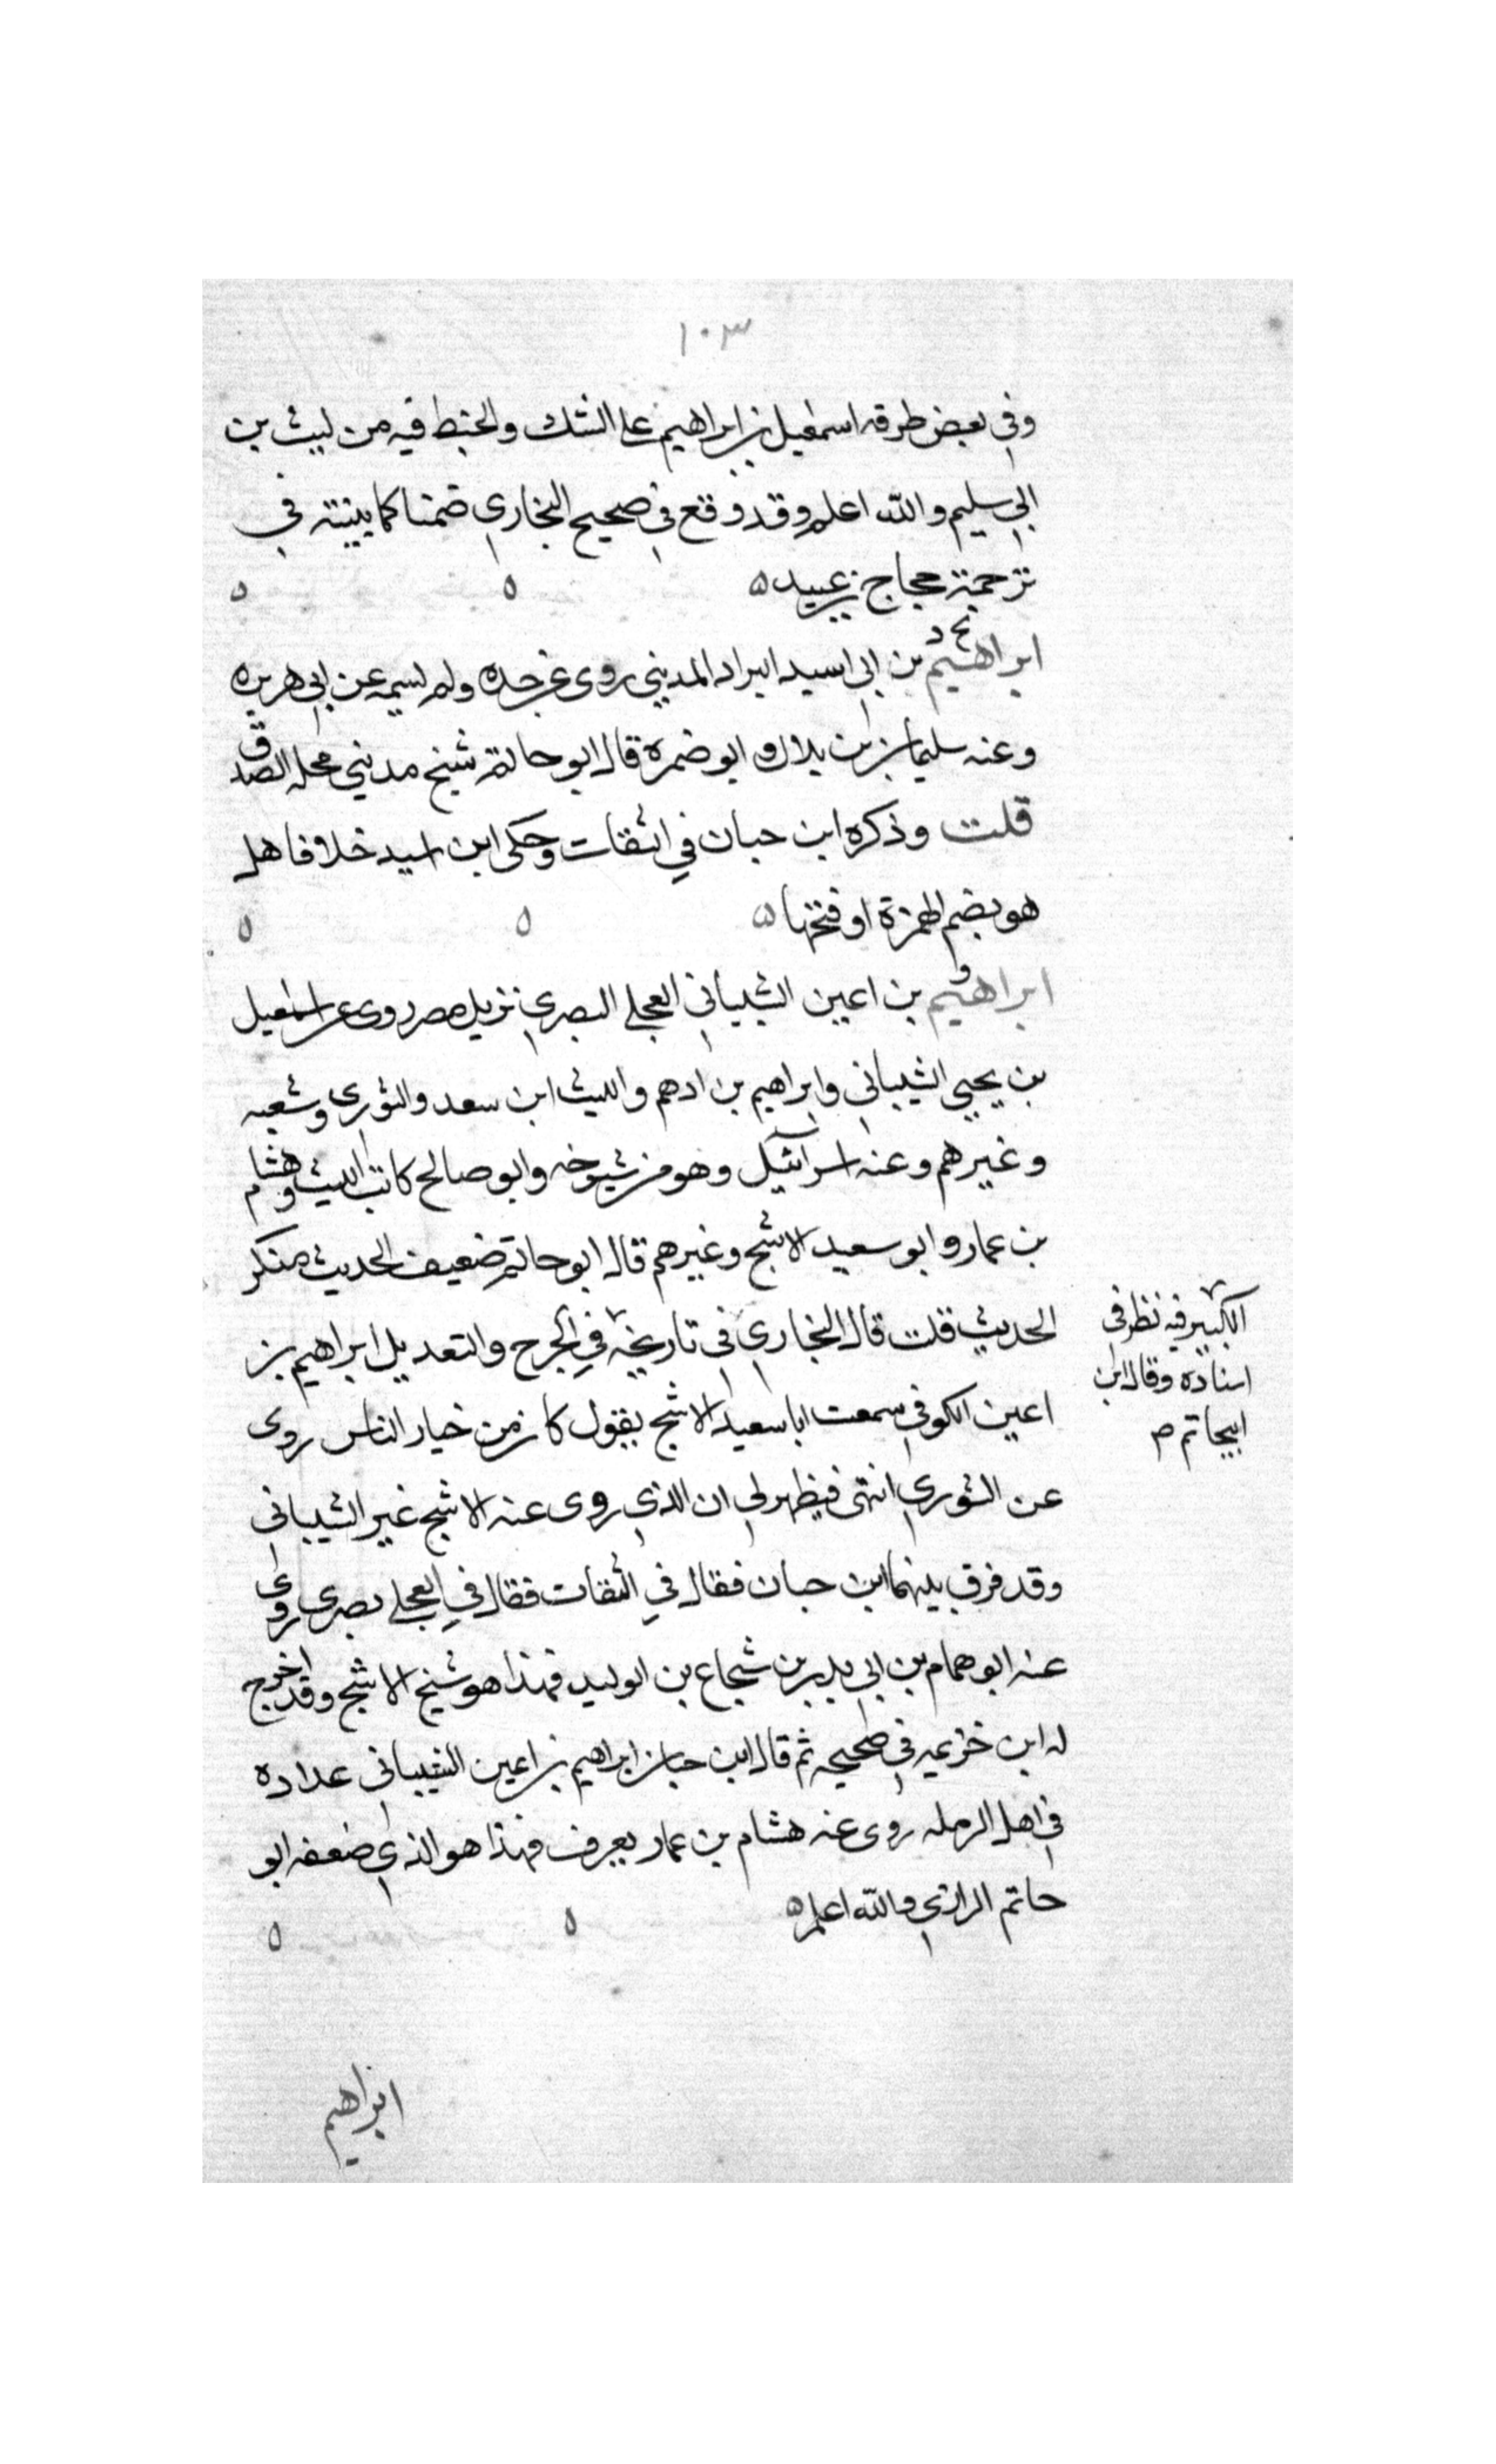 ١٠٣
وفي بعض طرقه اسمعيل بن ابراهيم على الشك والخبط فيه من ليث بن
ابي سليم والله اعلم وقد وقع في صحيح البخاري ضمنا كما بينته في
ترجمة حجاج بن عبيد ه ه ه
بخ د
ابراهيم بن ابي اسيد البراد المديني روى عن جده ولم يسمه عن ابي هريره
وعنه سليمان بن بلال وابو ضمرة قال ابو حاتم شيخ مديني محله الصدق
قلت وذكره ابن حبان في الثقات وحكى ابن اسيد خلافا هل
هو بضم الهمزة او فتحها ه ه ه
ابراهيم بن اعين الشيباني العجلي البصري نزيل مصر روى عن اسمعيل
بن يحيى الشيباني وابراهيم بن ادهم والليث ابن سعد والثوري وشعبه
وغيرهم وعنه اسرآئيل وهو من شيوخه وابو صالح كاتب الليث وهشام
بن عمار وابو سعيد الاشج وغيرهم قال ابو حاتم ضعيف الحديث منكر
الحديث قلت قال البخاري في تاريخه في الجرح والتعديل ابراهيم بن
الكبير فيه نظر في
اسناده وقال ابن
ابيحاتم
اعين الكوفي سمعت ابا سعيد الاشج يقول كان من خيار الناس روى
عن الثوري انتهى فيظهر لي ان الذي روى عنه الاشج غير الشيباني
وقد فرق بينهما ابن حبان فقال في الثقات فقال في العجلي بصري روى
عنه ابو همام بن ابي بدر بن شجاع بن الوليد فهذا هو شيخ الاشج وقد اخرج
له ابن خزيمه في صحيحه ثم قال ابن حبان ابراهيم بن اعين الشيباني عداده
في اهل الرمله روى عنه هشام بن عمار يعرف فهذا هو الذي ضعفه ابو
حاتم الرازي والله اعلم ه ه ه
ابراهيم